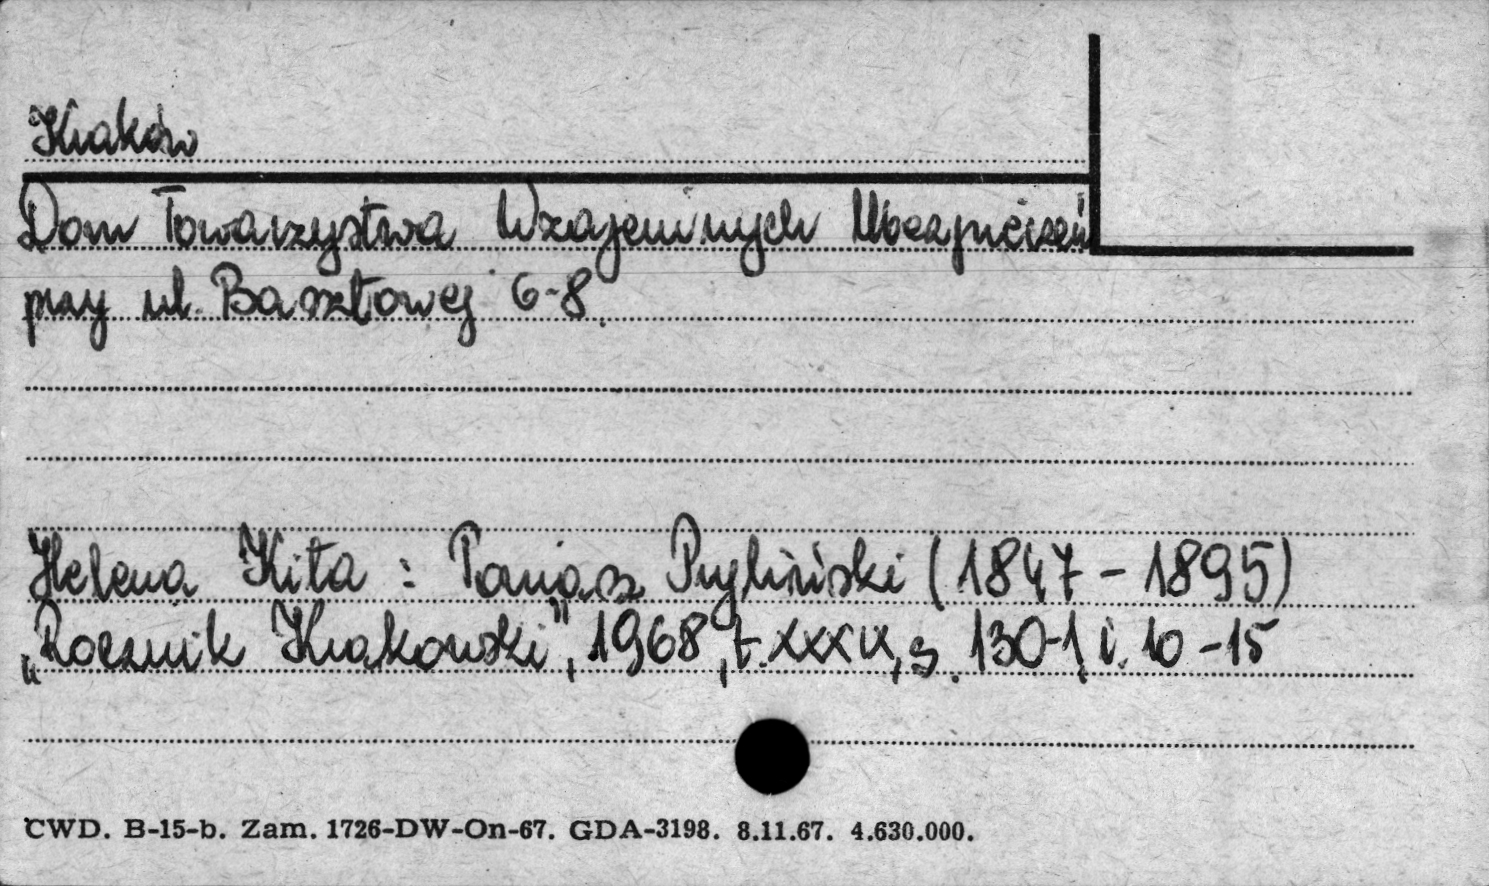 Kraków
Dom Towarzystwa Wzajemnych Ubezpieczeń
przy ul. Basztowej 6-8.
Helena Kita : Tomasz Pryliński (1847 - 1895)
„Rocznik Krakowski", 1968, t. XXXIX, s. 130-1, i. 10 - 15
CWD. B-15-b. Zam. 1726-DW-On-67. GDA-3198. 8.11.67. 4.630.000.